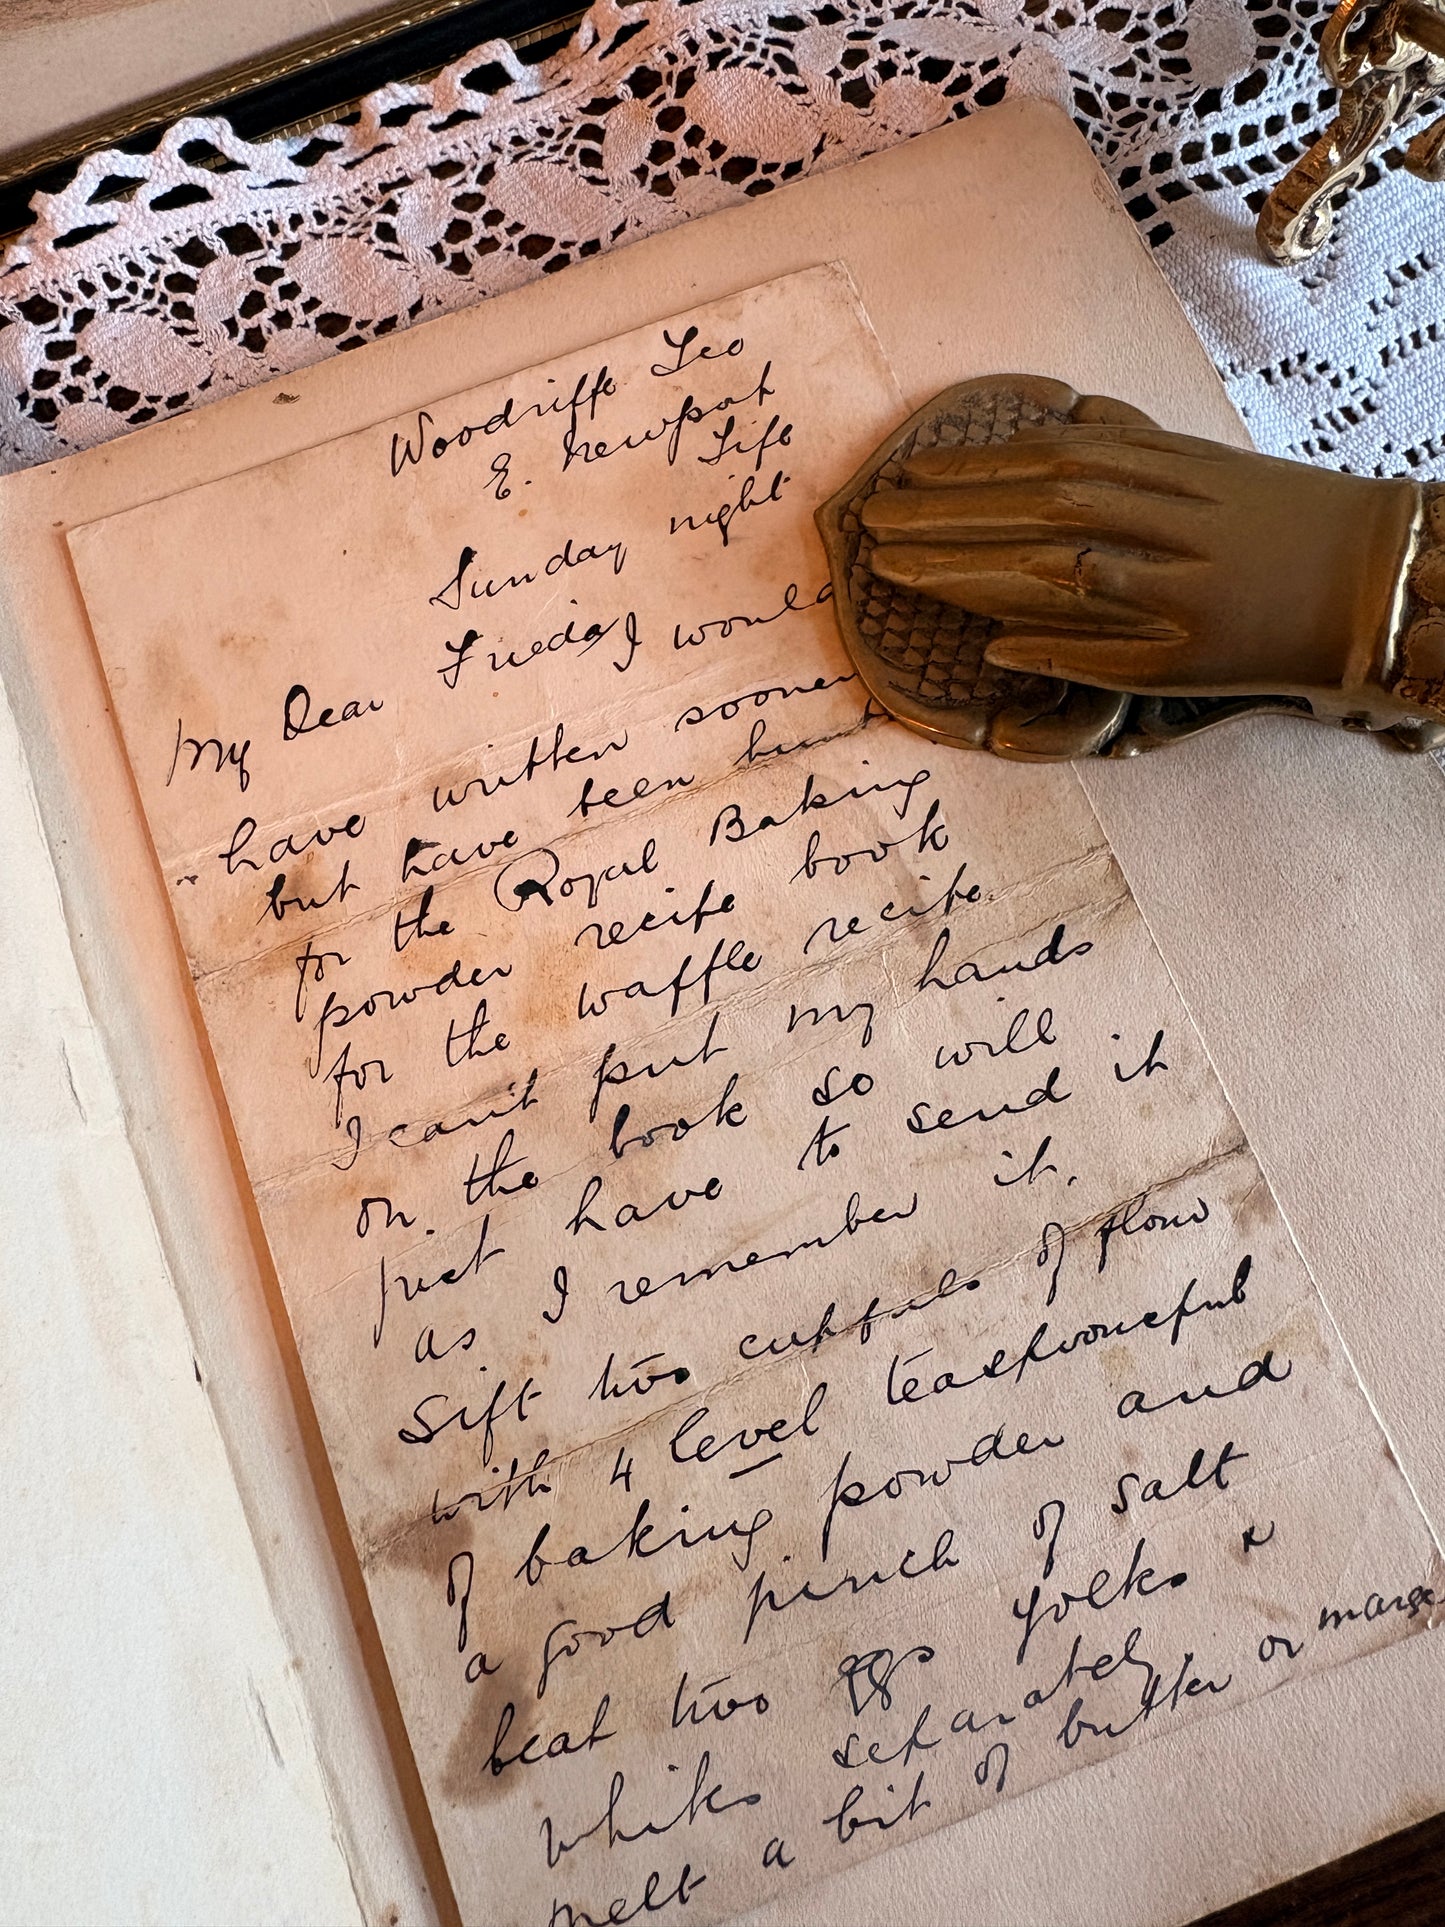 Woodriffe Leo
E. Newport
Fife
Sunday night
My Dear Frieda, I would
have written sooner
but have been hunt
for the Royal Baking
powder recipe book
for the waffle recipe.
I can't put my hands
on the book so will
just have to send it
as I remember it.
Sift two cupfuls of flour
with 4 level teaspoonsful
of baking powder and
a good pinch of salt
beat two eggs yolks &
whites separately
melt a bit of butter or marge